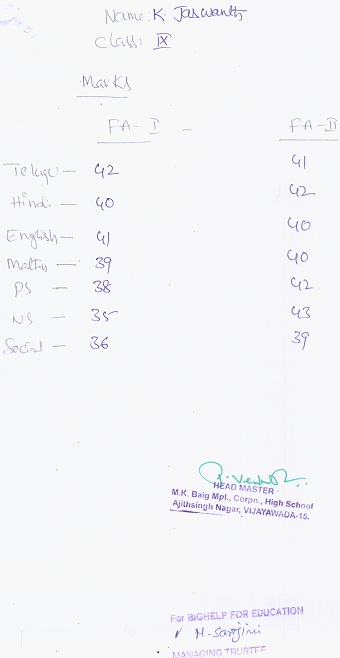 Name: K. Jaswanth
Class: IX
Marks
FA-I - FA-II
Telugu - 42 41
Hindi - 40 42
English - 41 40
Maths - 39 40
PS - 38 42
NS - 35 43
Social - 36 39
HEAD MASTER
M.K. Baig Mpl., Corpn., High School
Ajithsingh Nagar, VIJAYAWADA-15.
For BIGHELP FOR EDUCATION
M. Sarojini
MANAGING TRUSTEE